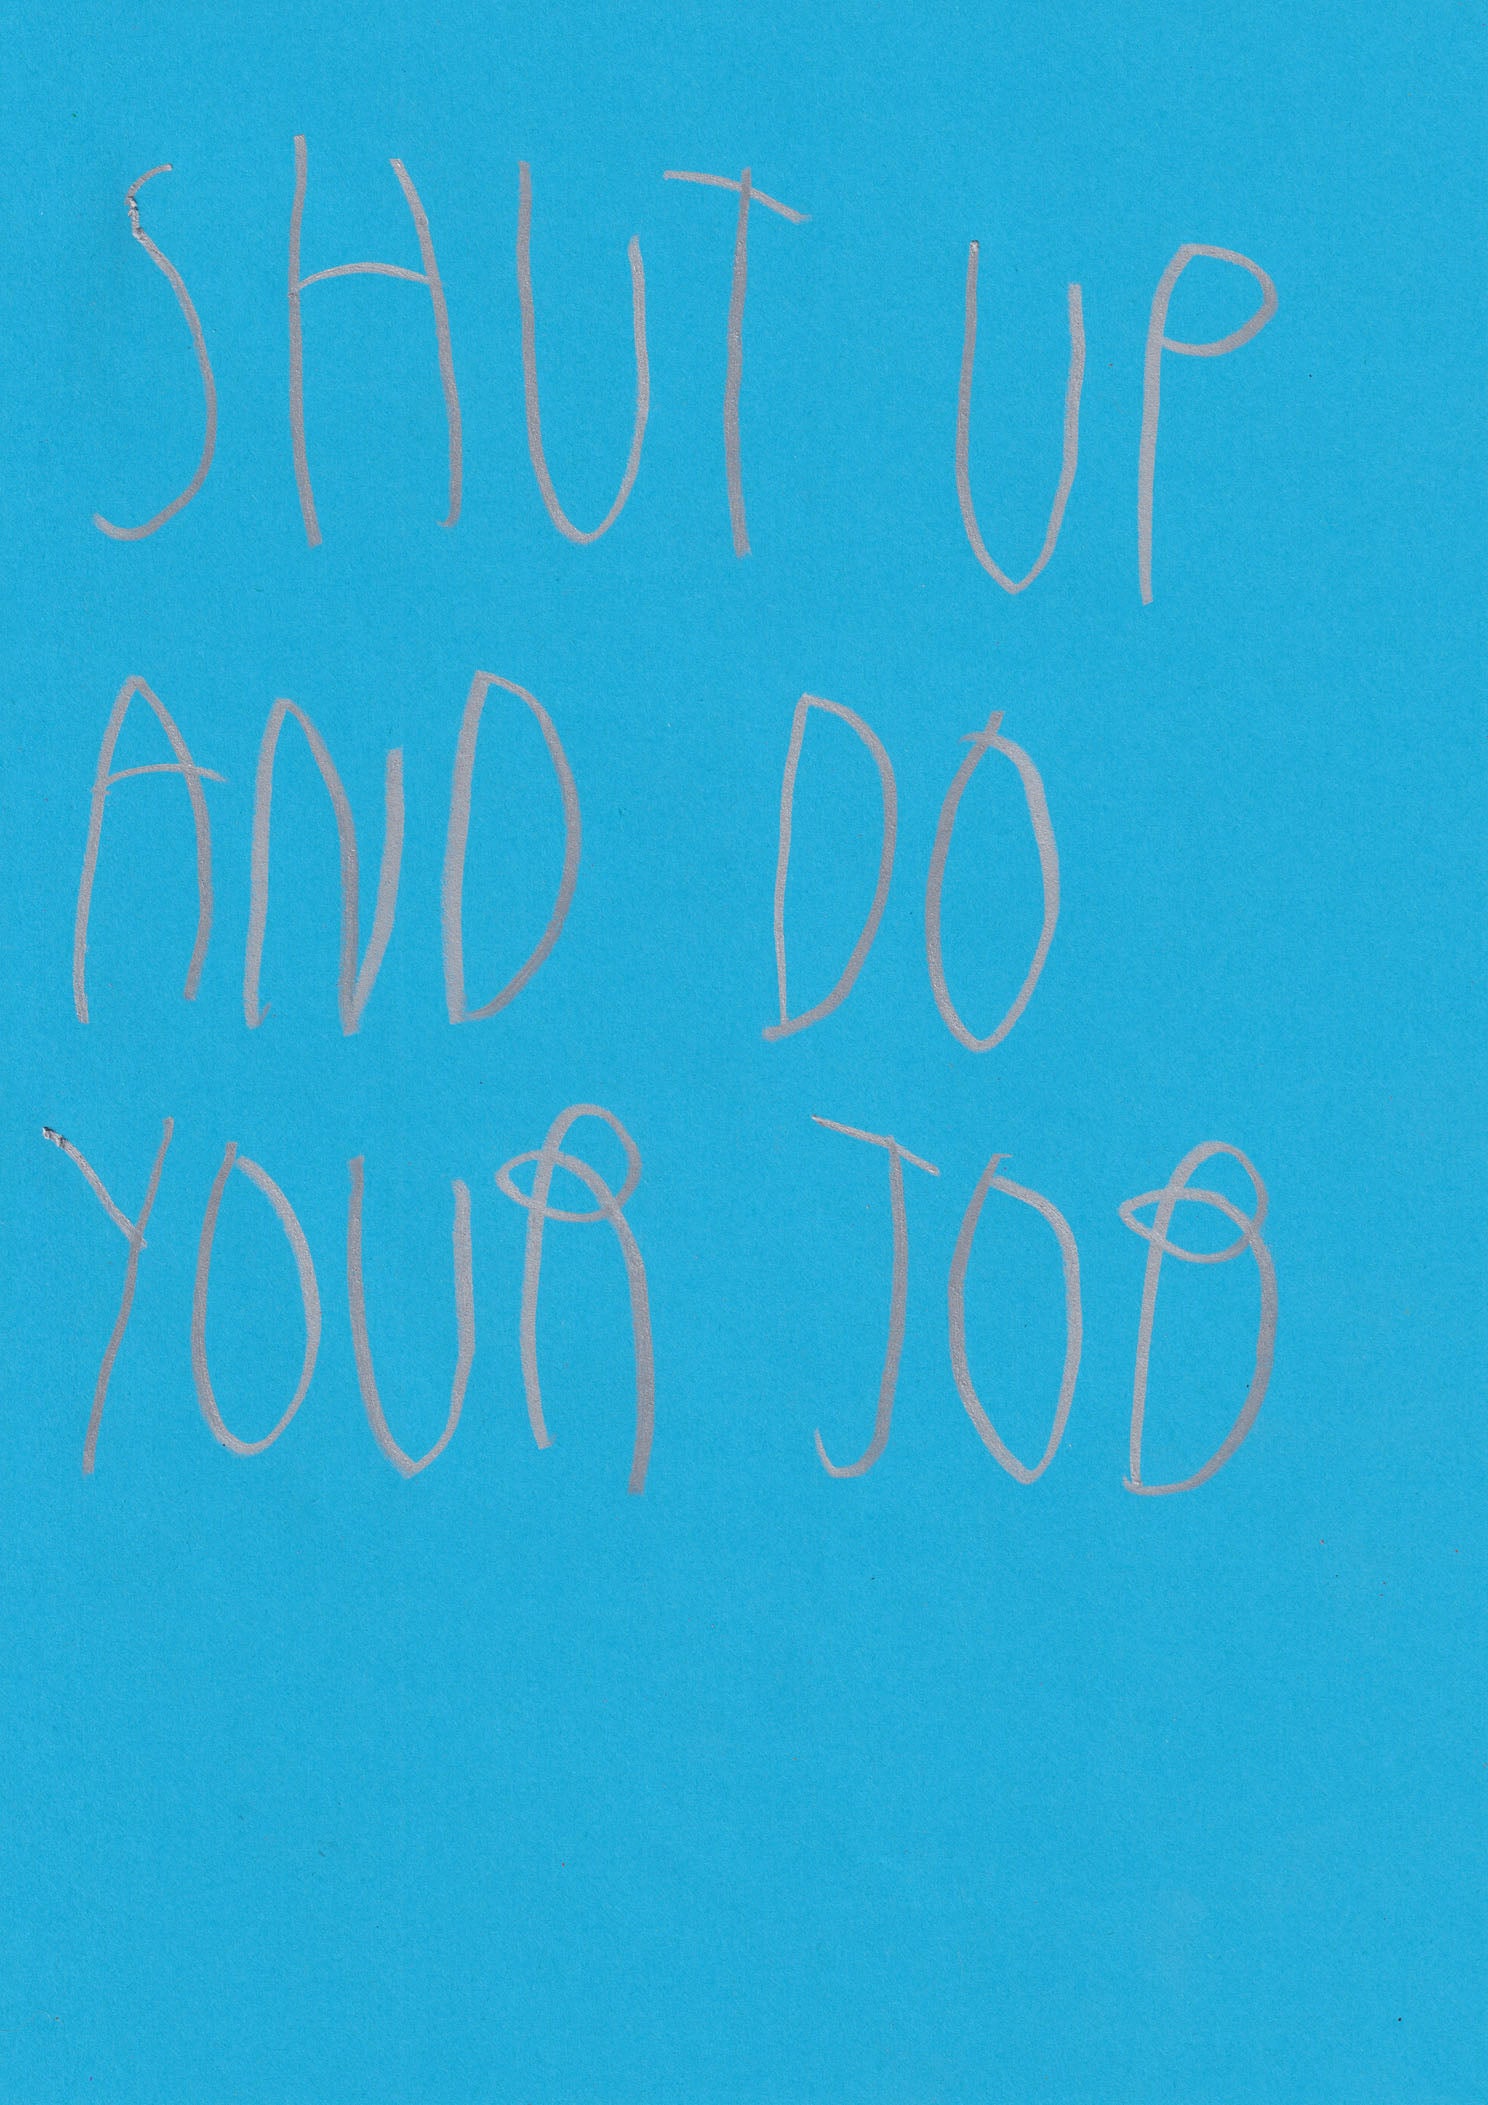 SHUT UP
AND DO
YOUR JOB